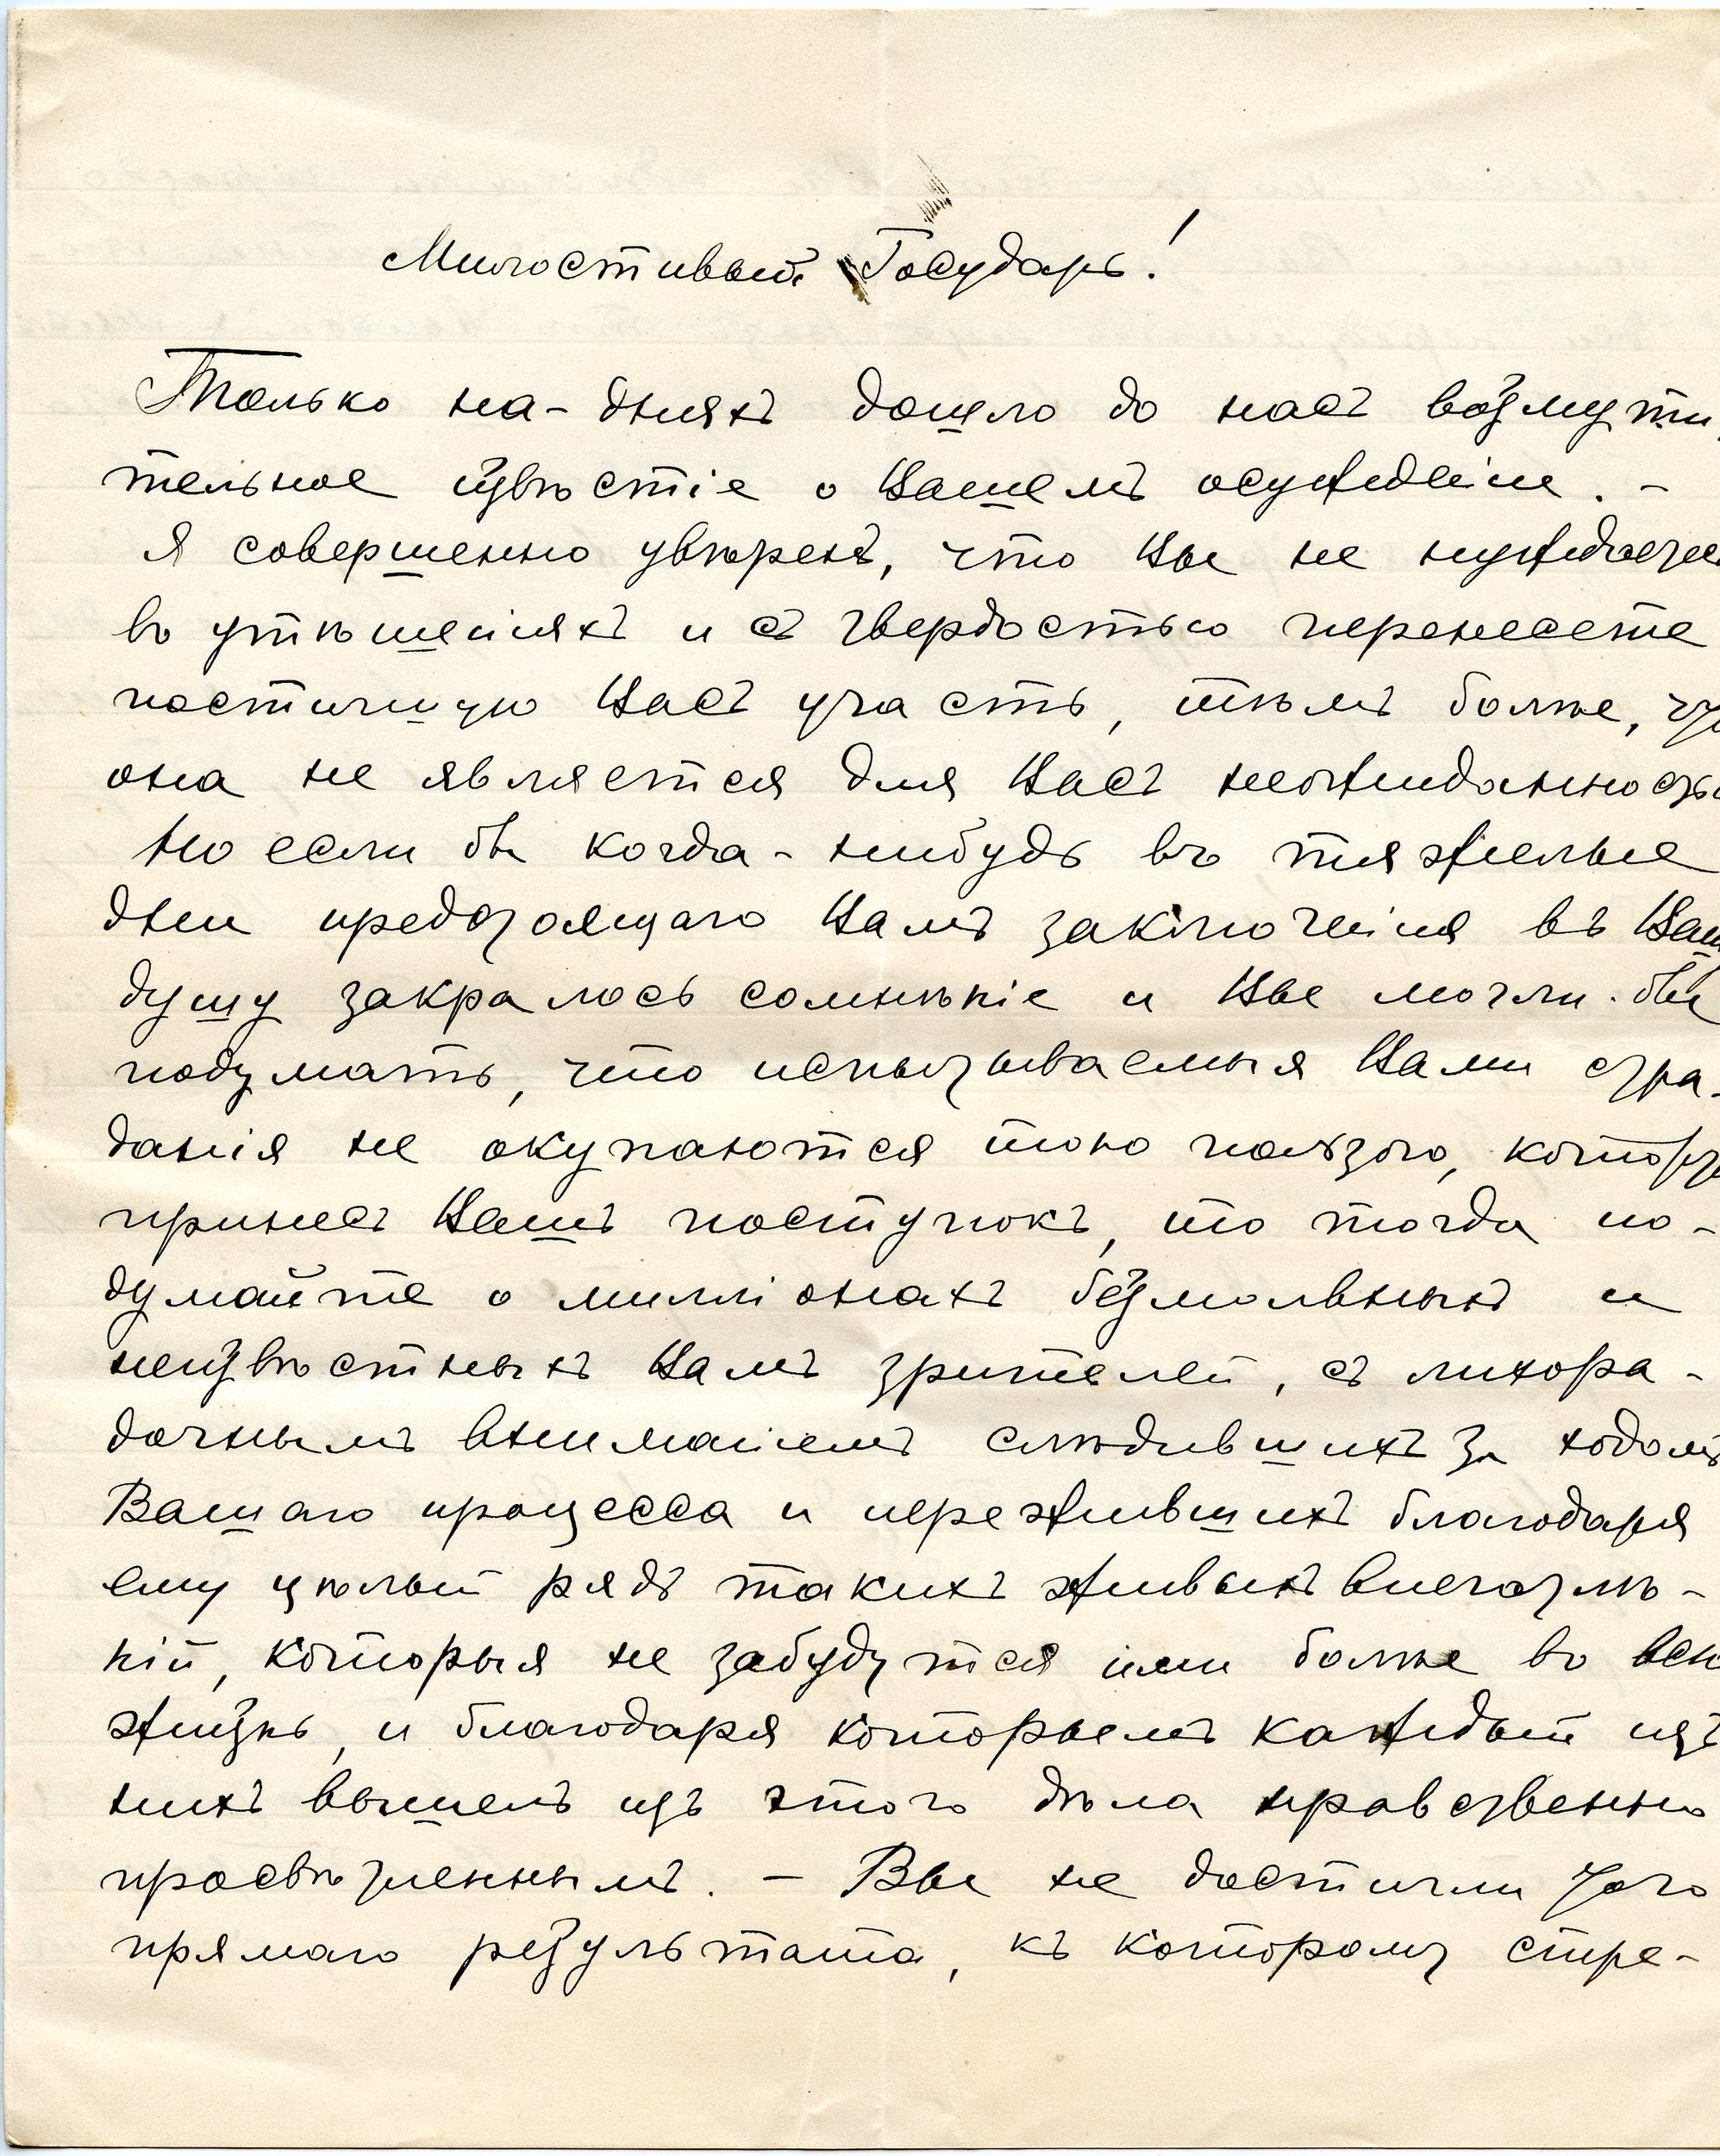 Милостивый Государь!
Только на-дняхъ дошло до насъ возмути
тельное извѣстіе о Вашемъ осужденіи. -
Я совершенно увѣренъ, что Вы не нуждаетес
въ утѣшеніяхъ и съ твердостью перенесете
постигшую Васъ участь, тѣмъ болѣе, что
она не является для Васъ неожиданность
Но если бы когда-нибудь въ тяжелые
дни предстоящаго Вамъ заключенія въ Ваш
душу закралось сомнѣніе и Вы могли бы
подумать, что испытываемыя Вами стра-
данія не окупаются тою пользою, котору
принесъ Вашъ поступокъ, то тогда по-
думайте о милліонахъ безмолвныхъ и
неизвѣстныхъ Вамъ зрителей, съ лихора-
дочнымъ вниманіемъ слѣдившихъ за ходомъ
Вашего процесса и пережившихъ благодаря
ему цѣлый рядъ такихъ живыхъ впечатлѣ-
ній, которыя не забудутся ими болѣе во всю
жизнь, и благодаря которымъ каждый изъ
нихъ вышелъ изъ этого дѣла нравственно
просвѣтленнымъ. - Вы не достигли того
прямаго результата, къ которому стре-